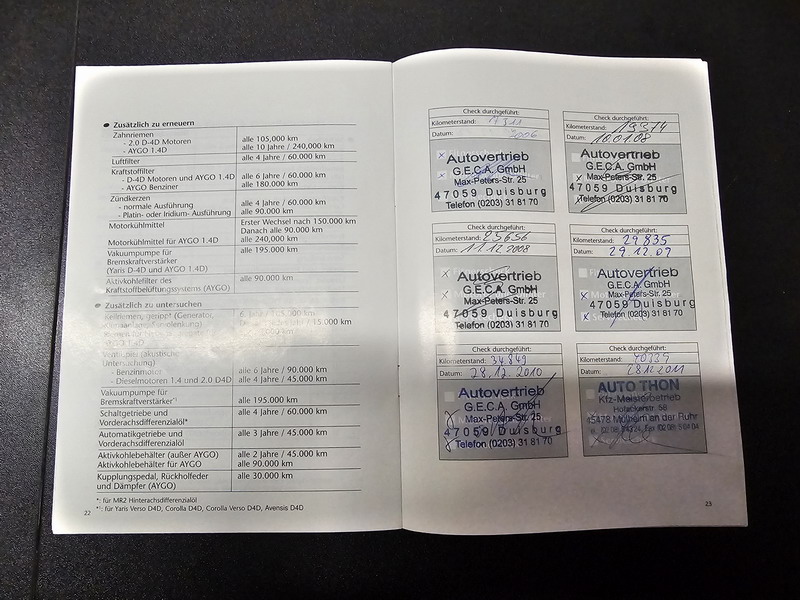 Zusätzlich zu erneuern
Zahnriemen
- 2.0 D-4D Motoren alle 105,000 km
- AYGO 1.4D alle 10 Jahre / 240,000 km
Luftfilter alle 4 Jahre / 60.000 km
Kraftstoffilter
- D-4D Motoren und AYGO 1.4D alle 6 Jahre / 60.000 km
- AYGO Benziner alle 180.000 km
Zündkerzen
- normale Ausführung alle 4 Jahre / 60.000 km
- Platin- oder Iridium- Ausführung alle 90.000 km
Motorkühlmittel Erster Wechsel nach 150.000 km
Danach alle 90.000 km
Motorkühlmittel für AYGO 1.4D alle 240,000 km
Vakuumpumpe für alle 195.000 km
Bremskraftverstärker
(Yaris D-4D und AYGO 1.4D)
Aktivkohlefilter des alle 90.000 km
Kraftstoffbelüftungssystems (AYGO)
Zusätzlich zu untersuchen
Keilriemen, gerippt (Generator,
/ 15.000 km
AYGO 1.4D
Ventilspiel (akustische
Untersuchung)
- Benzinmotor alle 6 Jahre / 90.000 km
- Dieselmotoren 1.4 und 2.0 D4D alle 4 Jahre / 45.000 km
Vakuumpumpe für
Bremskraftverstärker*¹ alle 195.000 km
Schaltgetriebe und alle 4 Jahre / 60.000 km
Vorderachsdifferenzialöl*
Automatikgetriebe und alle 3 Jahre / 45.000 km
Vorderachsdifferenzialöl
Aktivkohlebehälter (außer AYGO) alle 2 Jahre / 45.000 km
Aktivkohlebehälter für AYGO alle 90.000 km
Kupplungspedal, Rückholfeder alle 30.000 km
und Dämpfer (AYGO)
*: für MR2 Hinterachsdifferenzialöl
*¹: für Yaris Verso D4D, Corolla D4D, Corolla Verso D4D, Avensis D4D
22
Check durchgeführt:
Kilometerstand:
Datum: 2006
Autovertrieb
G.E.C.A. GmbH
Max-Peters-Str. 25
47059 Duisburg
Telefon (0203) 31 81 70
Check durchgeführt:
Kilometerstand: 19374
Datum: 10.01.08
Autovertrieb
G.E.C.A. GmbH
Max-Peters-Str. 25
47059 Duisburg
Telefon (0203) 31 81 70
Check durchgeführt:
Kilometerstand: 25656
Datum: 11.12.2008
Autovertrieb
G.E.C.A. GmbH
Max-Peters-Str. 25
47059 Duisburg
Telefon (0203) 31 81 70
Check durchgeführt:
Kilometerstand: 29835
Datum: 29.12.09
Autovertrieb
G.E.C.A. GmbH
Max-Peters-Str. 25
47059 Duisburg
Telefon (0203) 31 81 70
Check durchgeführt:
Kilometerstand: 34849
Datum: 28.12.2010
Autovertrieb
G.E.C.A. GmbH
Max-Peters-Str. 25
47059 Duisburg
Telefon (0203) 31 81 70
Check durchgeführt:
Kilometerstand: 40339
Datum: 28.12.2011
AUTO THON
Kfz-Meisterbetrieb
45478 Mülheim an der Ruhr
23